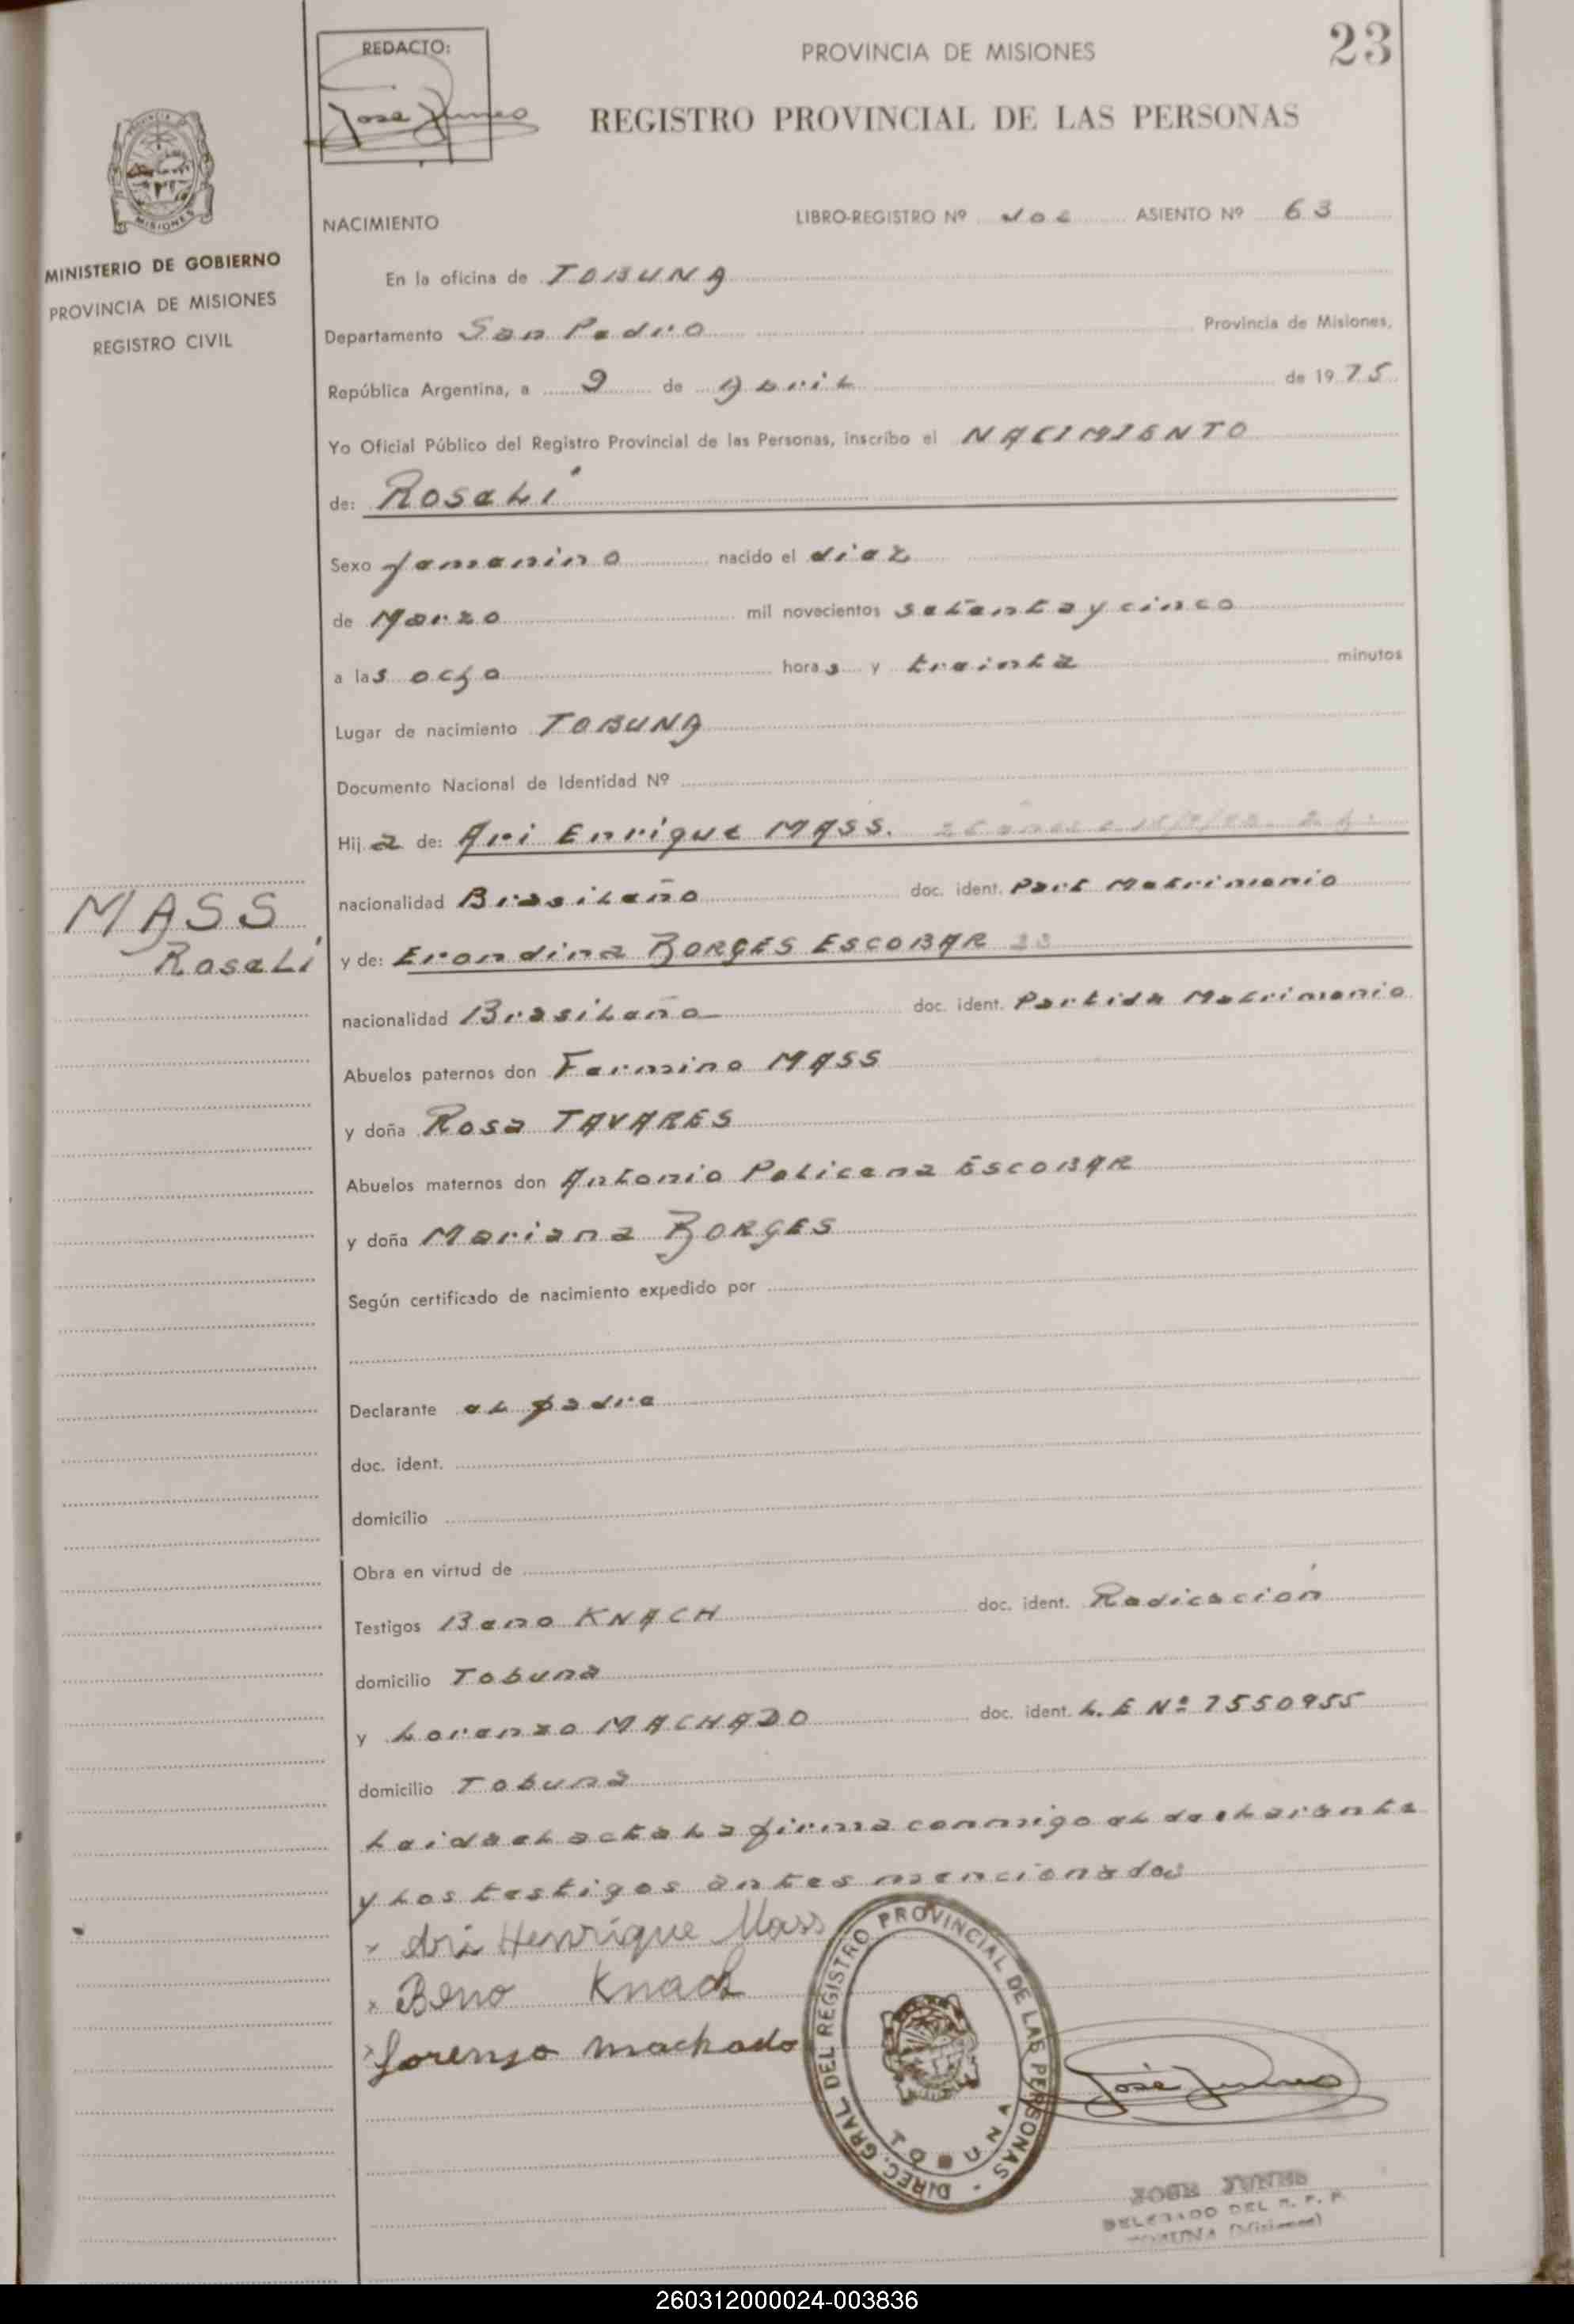 REDACTO:
PROVINCIA DE MISIONES
23
REGISTRO PROVINCIAL DE LAS PERSONAS
MISIONES
MINISTERIO DE GOBIERNO
PROVINCIA DE MISIONES
REGISTRO CIVIL
NACIMIENTO
LIBRO-REGISTRO Nº dos ASIENTO Nº 63
En la oficina de TOBUNA
Departamento San Pedro Provincia de Misiones,
República Argentina, a 9 de Abril de 1975
Yo Oficial Público del Registro Provincial de las Personas, inscribo el NACIMIENTO
de: Roselí
Sexo femenino nacido el diez
de Marzo mil novecientos setenta y cinco
a las ocho horas y treinta minutos
Lugar de nacimiento TOBUNA
Documento Nacional de Identidad Nº
Hija de: Ari Enrique MASS.
nacionalidad Brasileño doc. ident. Part Matrimonio
MASS
Roselí
y de: Erondina BORGES ESCOBAR 23
nacionalidad Brasileña doc. ident. Partida Matrimonio
Abuelos paternos don Fermino MASS
y doña Rosa TAVARES
Abuelos maternos don Antonio Policena ESCOBAR
y doña Mariana BORGES
Según certificado de nacimiento expedido por
Declarante el padre
doc. ident.
domicilio
Obra en virtud de
Testigos Beno KNACH doc. ident. Radicación
domicilio Tobuna
y Lorenzo MACHADO doc. ident. L.E Nº 7550955
domicilio Tobuna
Leida el acta la firma conmigo el declarante
y los testigos antes mencionados
x Ari Henrique Mass
x Beno Knach
x Lorenzo machado
DIREC. GRAL DEL REGISTRO PROVINCIAL DE LAS PERSONAS -
TOBUNA
DELEGADO DEL R. P. P.
TOBUNA (Misiones)
260312000024-003836